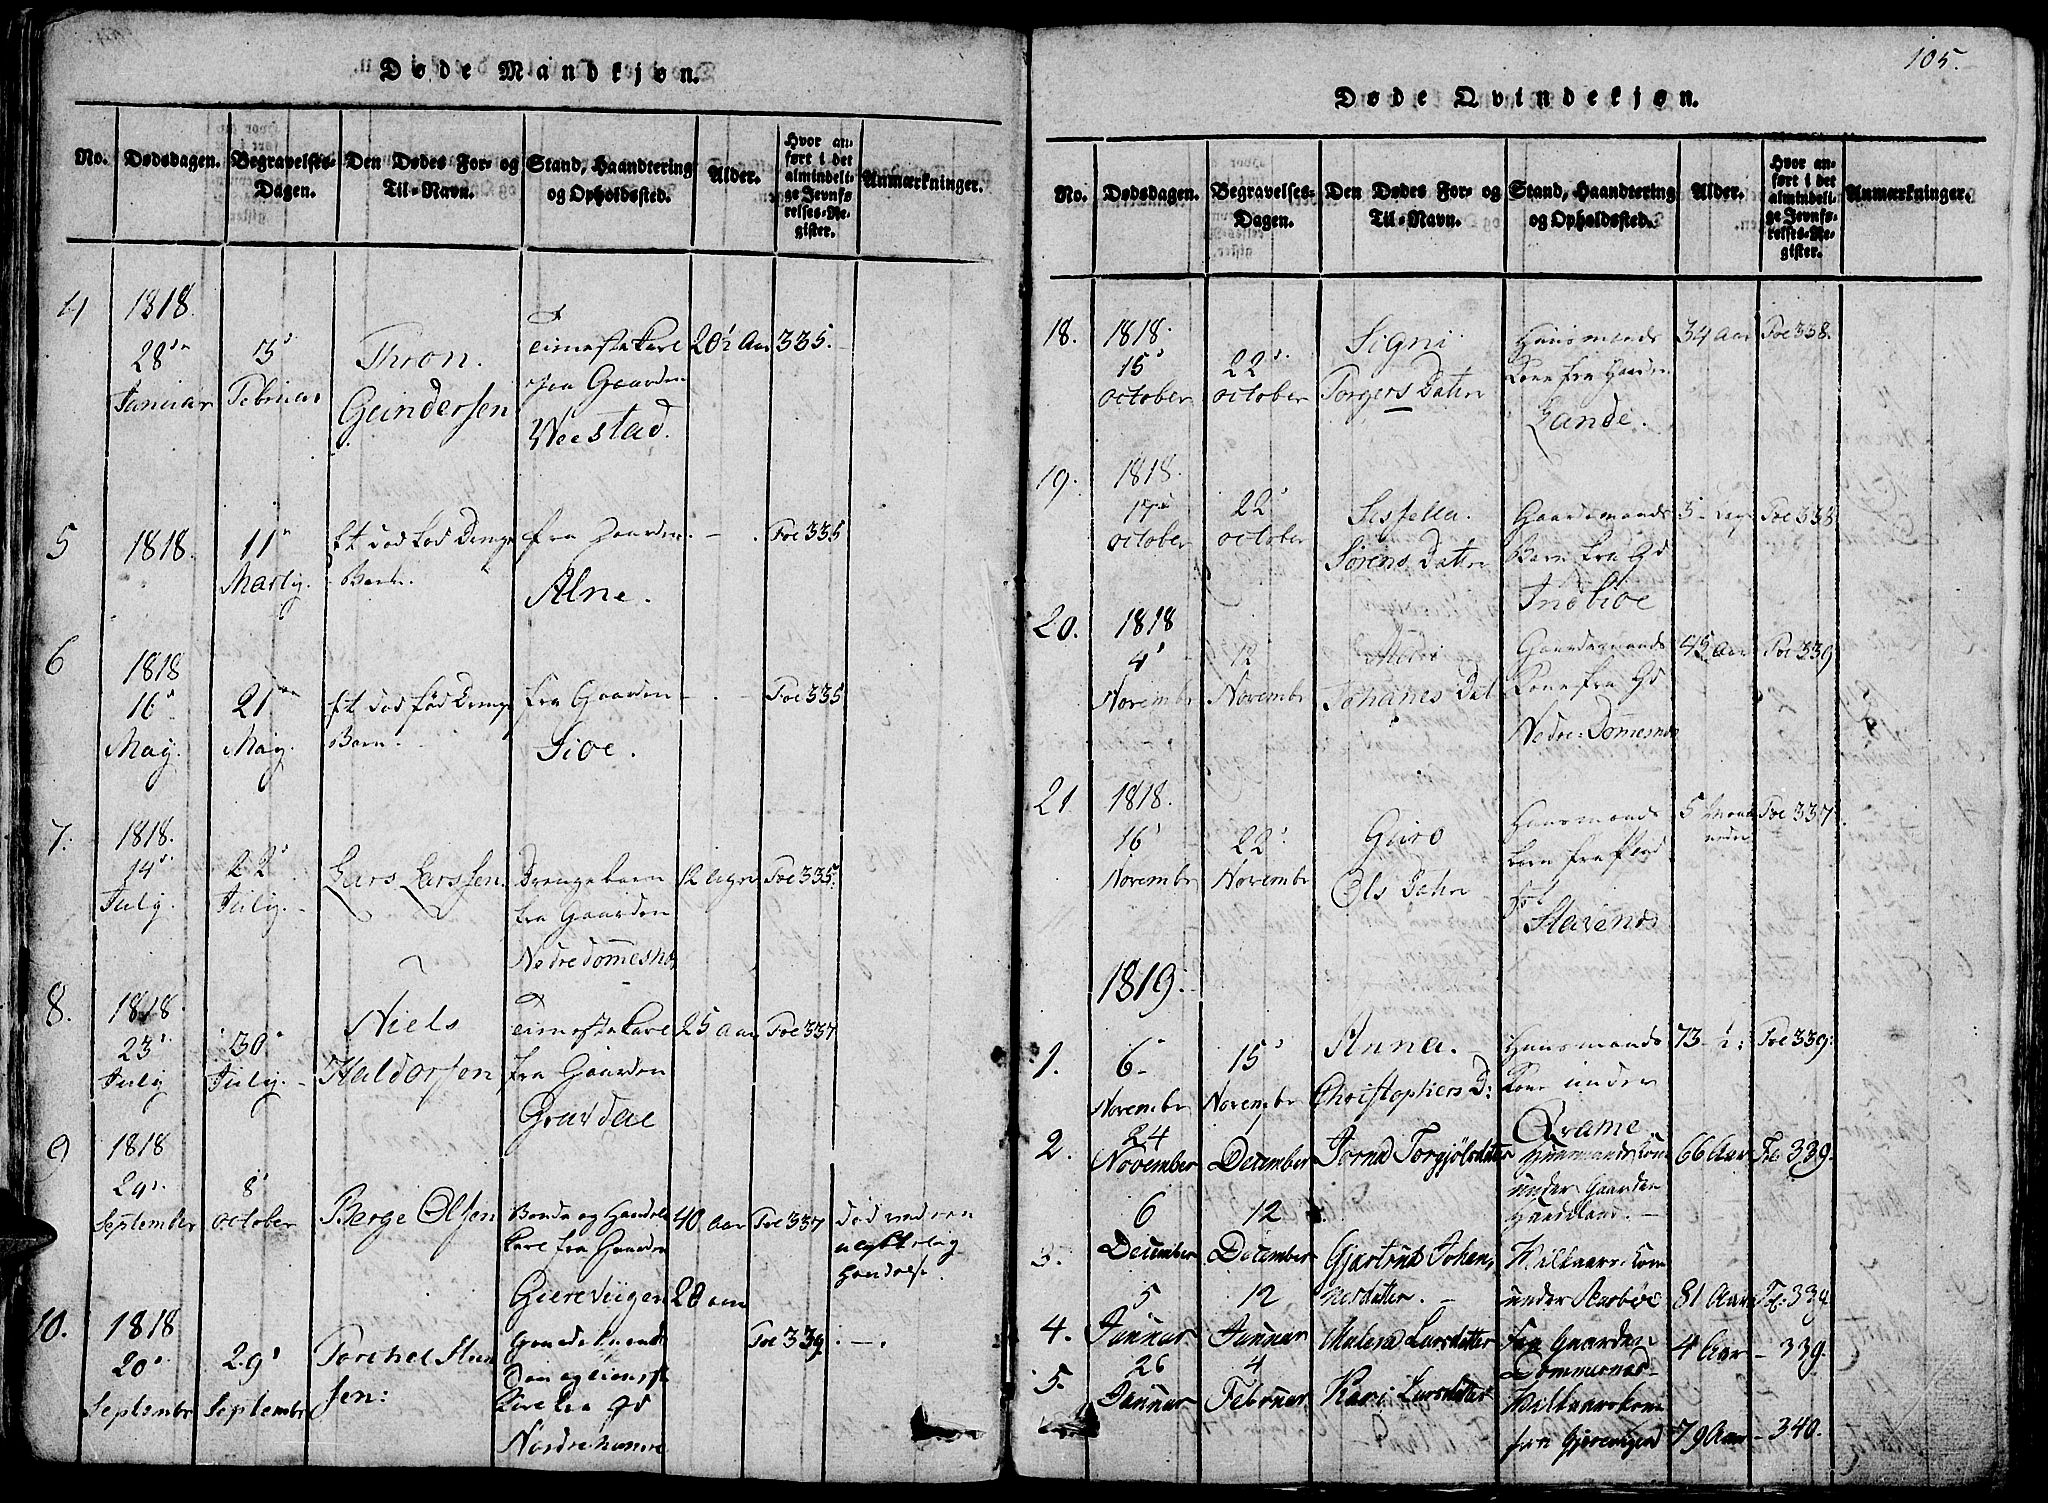 Døde Mandkjøn.
No. Dødsdagen. Begravelses-Dagen. Den Dødes For- og Til-Navn. Stand, Haandtering og Opholdssted. Alder. Hvor anført i det almindelige Jevnførelses-Register. Anmærkninger.
4 1818. 28de Januar 3 Februar Thron Gundersen Tienestekarl paa Gaarden Weestad. 20½ Aar 335.
5 1818. 11te Martij. et død fød Drenge Barn. fra Gaarden Alne. Foe 335
6 1818 16 May. 21 May. et død fød Drenge Barn. fra Gaarden Sioe. Foe 335
7. 1818. 14 Julij. 22 Julij. Lars Larssen. Drengebarn fra Gaarden Nedre Domesnes 12 Foe 335.
8. 1818 23 Julij 30 Julij. Niels Haldorsen Tienestekarl fra Gaarden Gravdal 25 Aar Foe 337
9 1818 29 September 8 October Berge Olsen Bonde og Handels karl fra Gaarden Gierevigen 40 Aar Foe 337 død ved en ulykkelig Hændelse.
10. 1818 20 Septembr 29 Septembr Torchel Hansen: Gaardmands Søn og tienste Karl fra Gd Nordrehamre 28 Aar Foe 339.
105.
Døde Qvindekjøn.
No. Dødsdagen. Begravelses-Dagen. Den Dødes For- og Til-Navn. Stand, Haandtering og Opholdssted. Alder. Hvor anført i det almindelige Jevnførelses-Register. Anmærkninger.
18. 1818. 15 October 22 October Signi Torgers Datter Huusmands Kone fra Gaarden Lande. 34 Aar Foe 338.
19. 1818. 17 October 22 October Sissella Sørens Datter Gaardmands Barn fra Gd Indbiøe 3 Foe 338
20. 1818 4 Novembr 12 Novembr Johanes Dat Gaardmands Kone fra Gd Nedre Domesnes 45 Aar Foe 339
21 1818. 16 Novembr 22 Novembr Guro Ols Datter Huusmands barn fra Stavenes 5 Maaneder Foe 337
1819.
1. 6 Novembr 15 Novembr Anna Christophers D: Huusmands Kone under Qvame 73 ½ Foe 339:
2. 24 November December Torgjölsdatter Huusmands Kone under Gaarden 66 Aar Foe 339.
3. 6 December 12 December Gjærtrud Johannesdatter. Wilkaars Kone under Aarbøe 81 Aar Foe: 334
4. 5 Januar 12 Januar Malena Larsdatter fra Gaarden Dommersnæs 4 Aar 339.
5. 26 Januar 4 Februar Kari Larsdatter Wilkaarskone fra Gjerevigen 79 Aar 340.